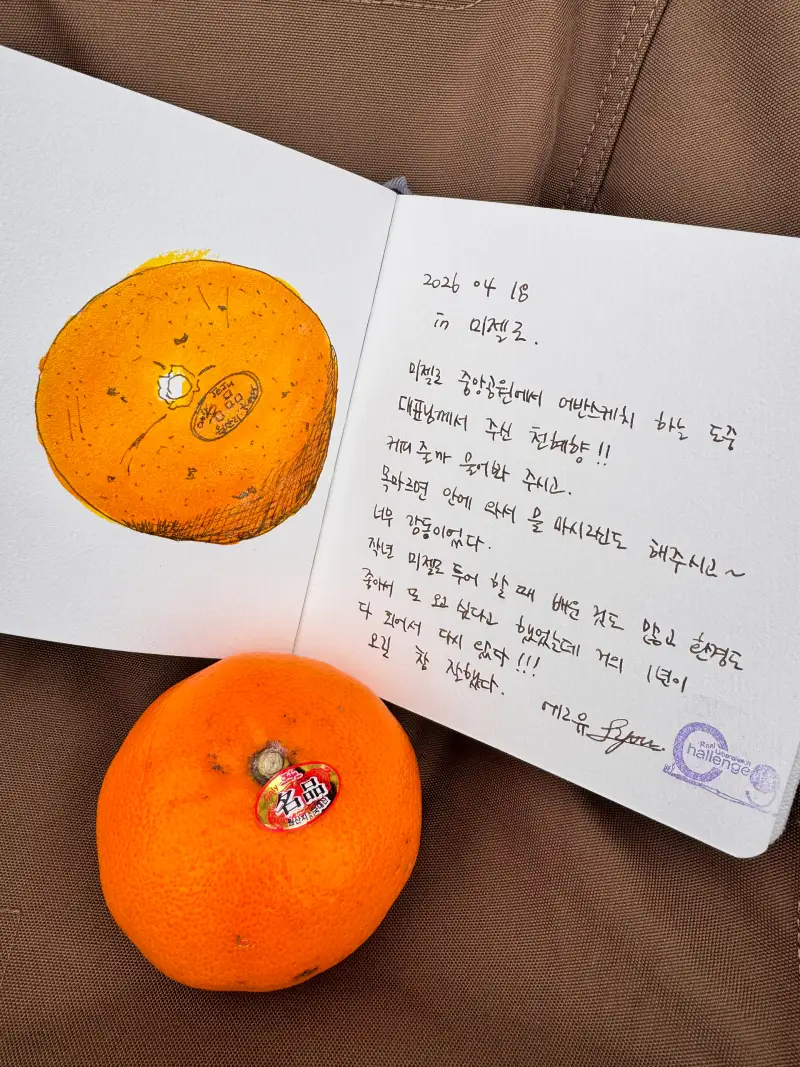 2026 04 18
in 미젤로.
미젤로 중앙공원에서 어반스케치 하는 도중
대표님께서 주신 천혜향!!
커피 줄까 물어봐 주시고.
목마르면 안에 와서 물 마시라신도 해주시고~
너무 감동이었다.
작년 미젤로 투어 할 때 배운 것도 많고 환경도
좋아서 또 오고 싶다고 했었는데 거의 1년이
다 되어서 다시 왔다!!!
오길 참 잘했다.
에르유
Real
Challenge
JEJU
名品